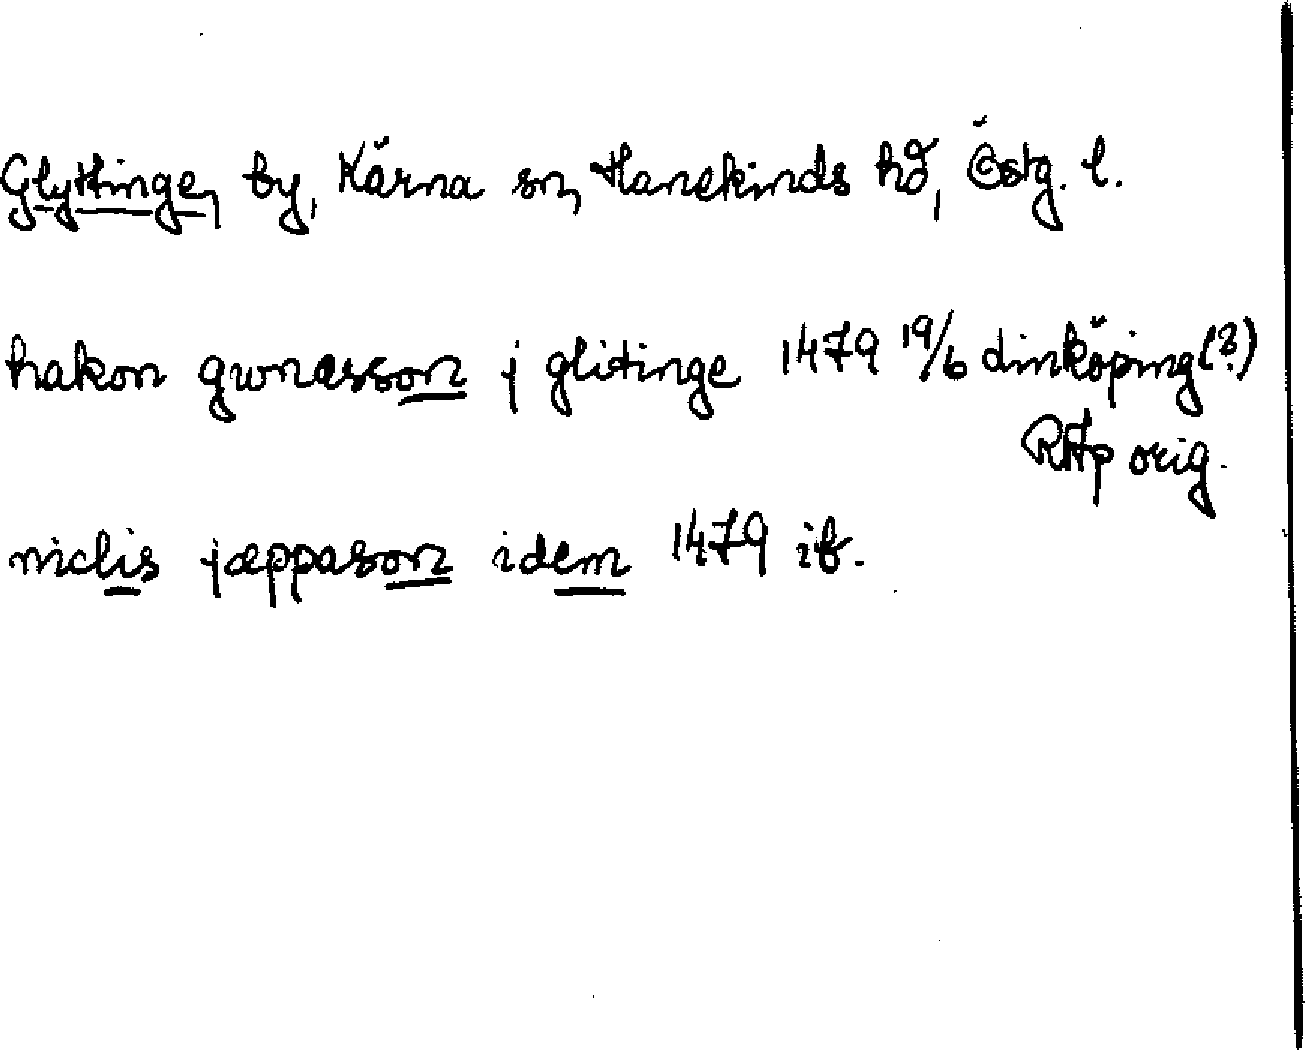 Glyttinge, by, Kärna sn, Hanekinds hd, Östg. l.
hakon gwnasson j glitinge 1479 19/6 Linköping (?)
RAp orig.
niclis jæppason idem 1479 ib.